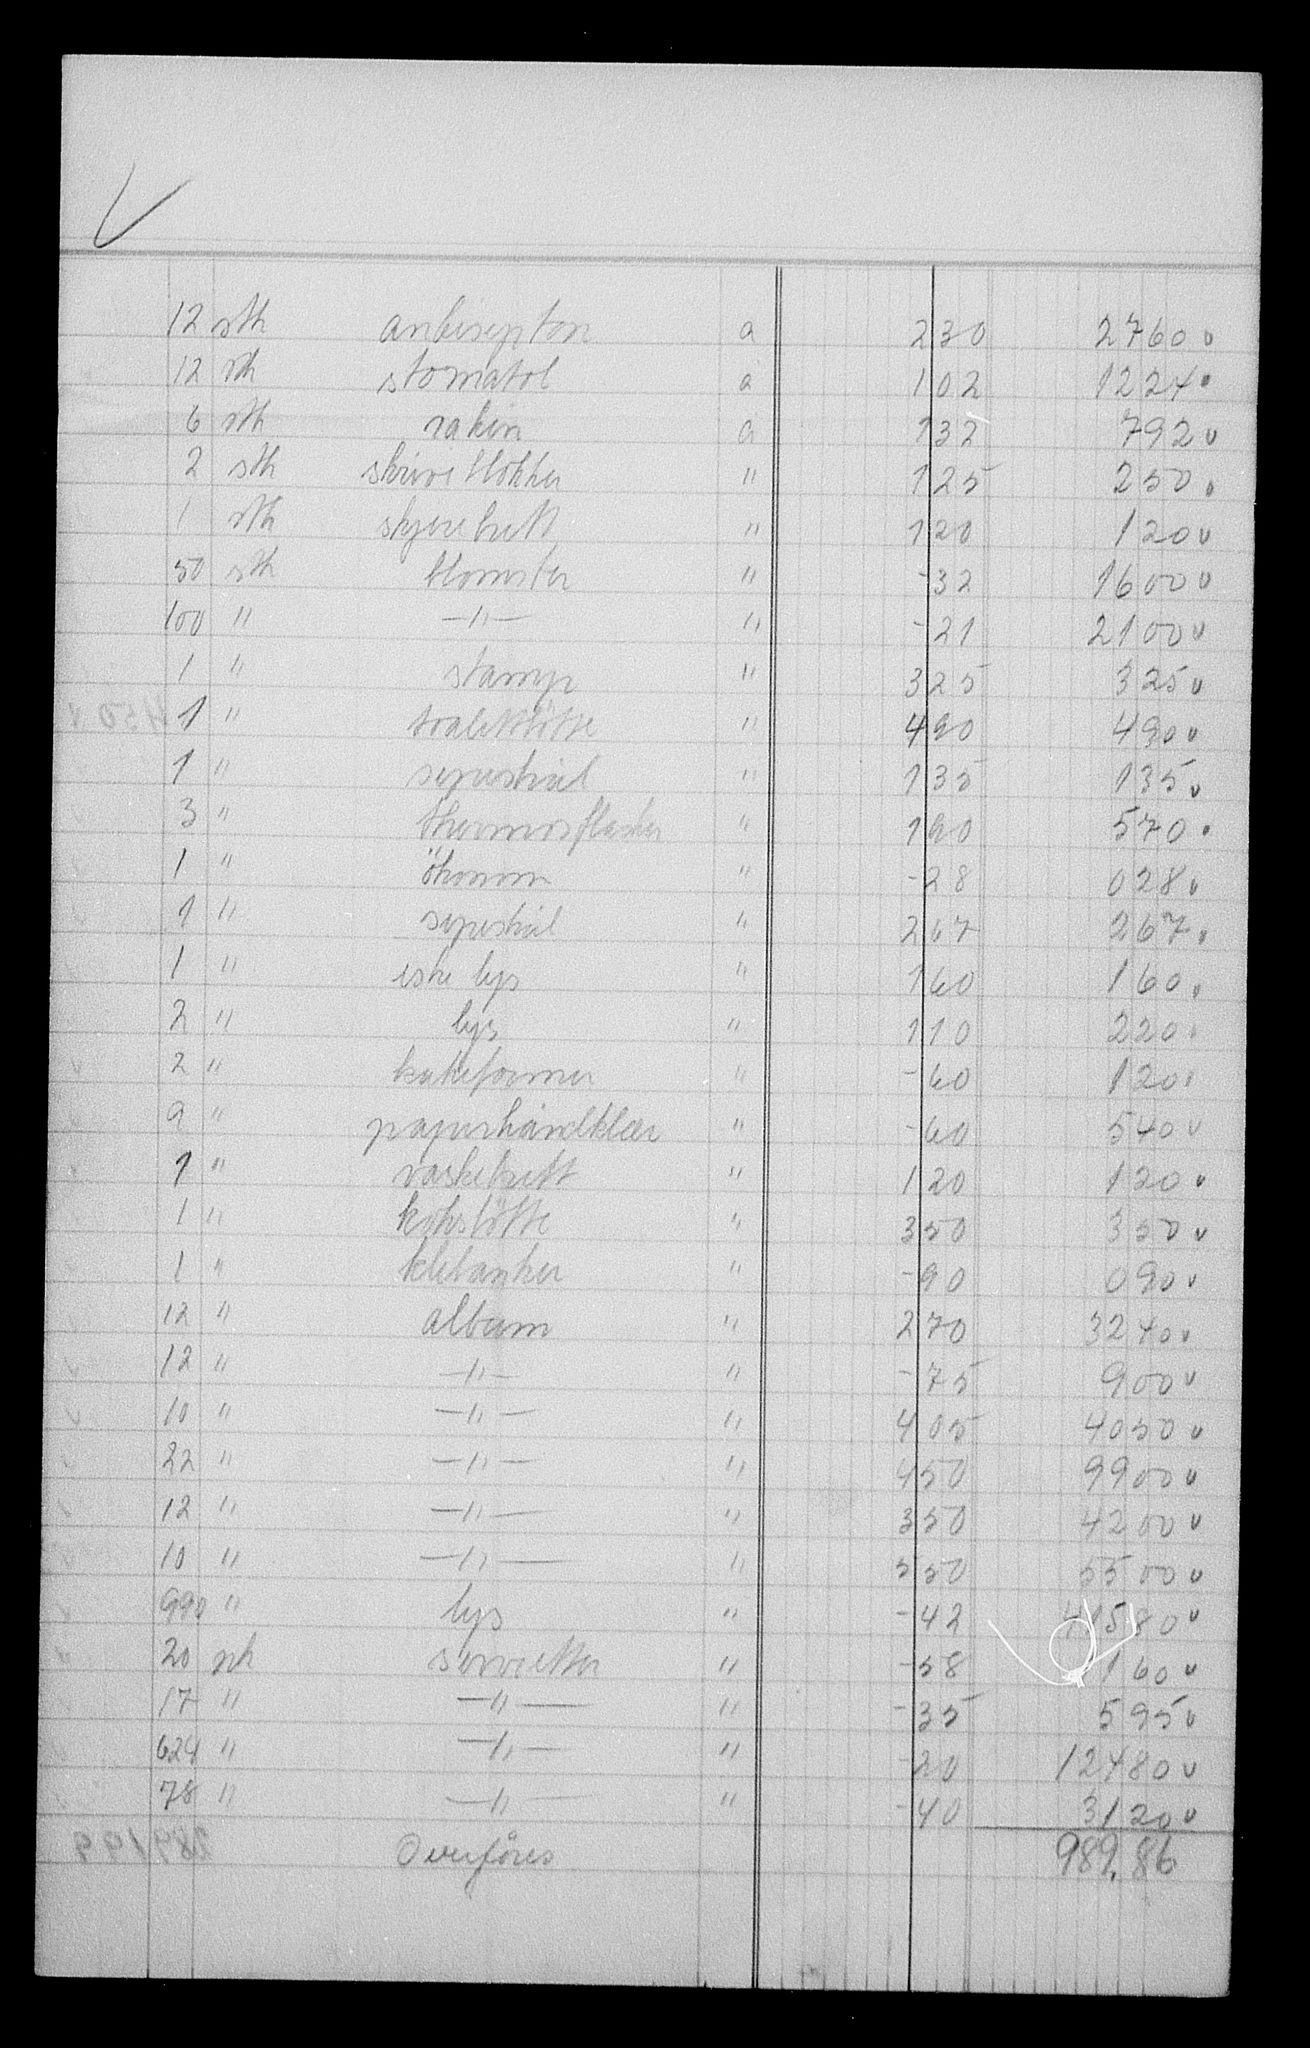 12 stk antisepton a 230 2760
12 stk stomatol a 102 1224
6 stk rakin a 132 792
2 stk skriveblokker " 125 250
1 stk skjærebrett " 120 120
50 stk blomster " -32 1600
100 " —"— " -21 2100
1 " stamp " 325 325
1 " " 490 490
1 " " 135 135
3 " thermosflasker " 190 570
1 " " -28 028
1 " " 267 267
1 " eske lys " 160 160
2 " lys " 110 220
2 " kakeformer " -60 120
9 " papirshåndklær " -60 540
1 " vaskebrett " 120 120
1 " " 350 350
1 " " -90 090
12 " album " 270 3240
12 " —"— " -75 900
10 " —"— " 405 4050
22 " —"— " 450 9900
12 " —"— " 350 4200
10 " —"— " 550 5500
990 " lys " -42 41580
20 servietter " -58 1160
17 " —"— " -35 595
624 " —"— " -20 12480
78 " —"— " -40 3120
Overføres 989.86